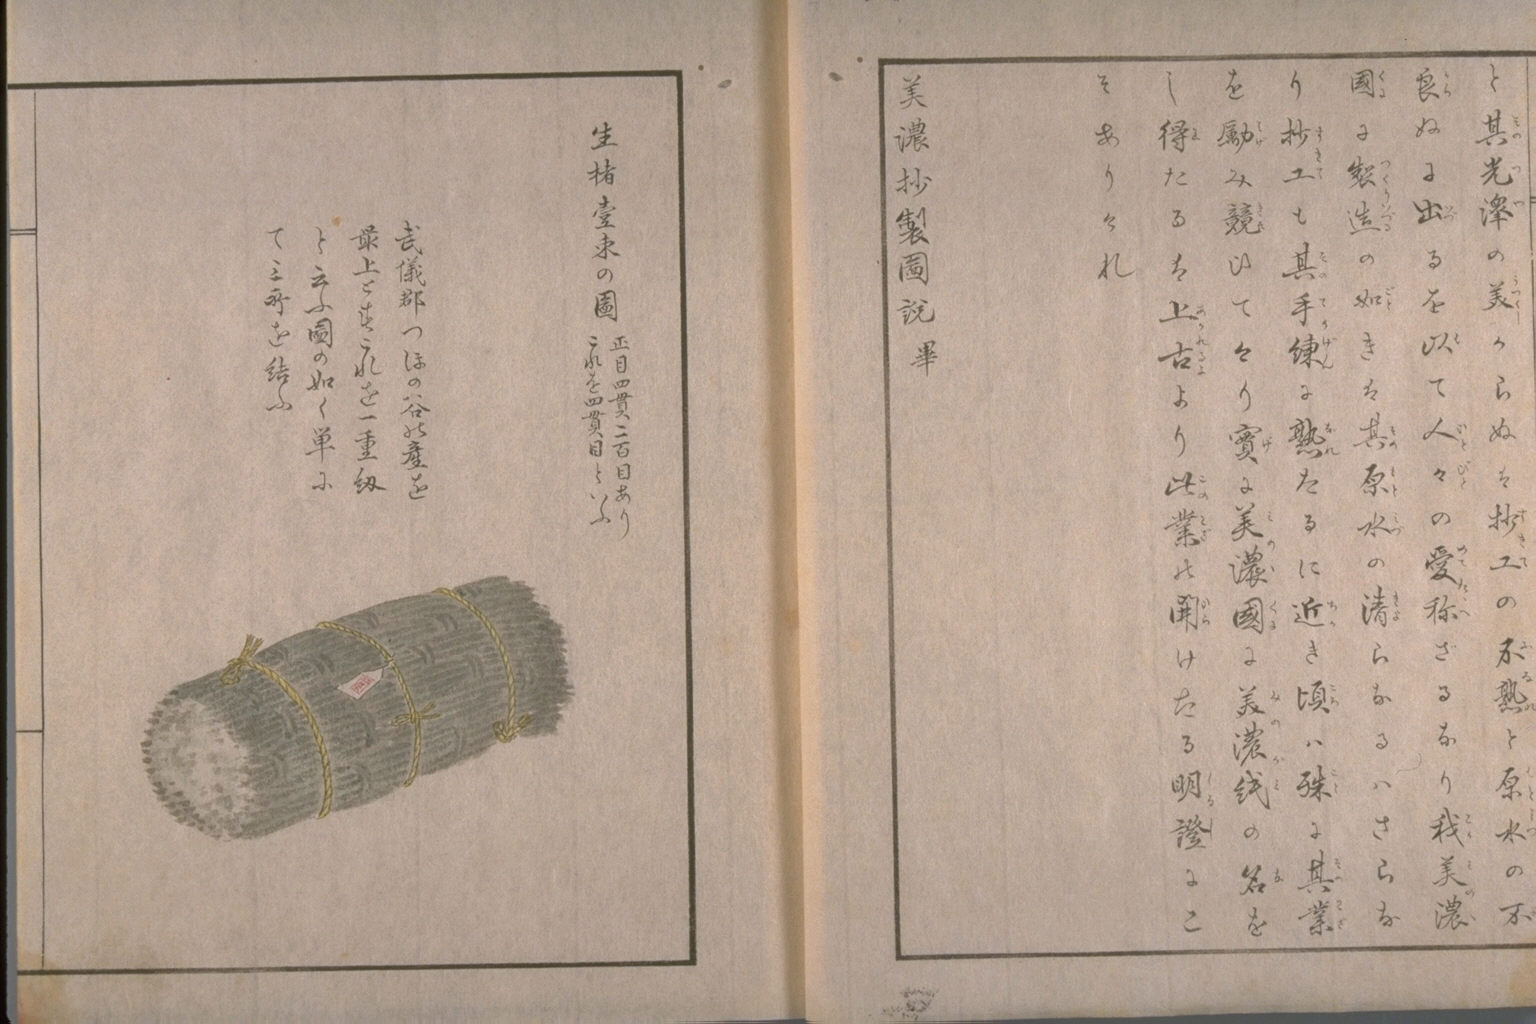 と其光澤の美からぬは抄工の不熟と原水の不
良ぬに出るを以て人々の愛称ざるなり我美濃
國に製造の如きは其原水の清らなるハさらな
り抄工も其手練に熟たるに近き頃ハ殊に其業
を勵み競ひてけり實に美濃國に美濃紙の名を
し得たるは上古より此業の開けたる明證にこ
そありけれ
美濃抄製圖説畢
生楮壹束の圖
正目四貫二百目あり
これを四貫目といふ
武儀郡つほの谷の産を
最上とすこれを一重
と云ふ圖の如く単に
て三所を結ふ